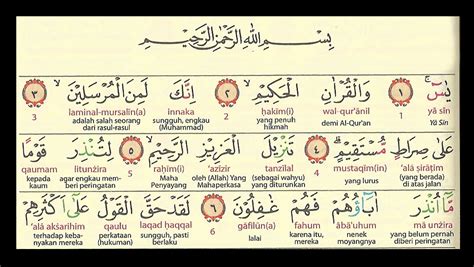 بِسْمِ اللهِ الرَّحْمٰنِ الرَّحِيْمِ
يٰسۤ ۚ ١ وَالْقُرْاٰنِ الْحَكِيْمِۙ ٢ اِنَّكَ لَمِنَ الْمُرْسَلِيْنَۙ ٣
yā sīn 1 wal-qur'ānil ḥakīm(i) 2 innaka laminal-mursalīn(a) 3
Yā Sīn demi Al-Qur'an yang penuh sungguh, engkau adalah salah seorang
hikmah (Muhammad) dari rasul-rasul
عَلٰى صِرَاطٍ مُّسْتَقِيْمٍۗ ٤ تَنْزِيْلَ الْعَزِيْزِ الرَّحِيْمِۙ ٥ لِتُنْذِرَ قَوْمًا
'alā ṣirāṭim mustaqīm(in) 4 tanzīlal 'azīzir raḥīm(i) 5 litunżira qaumam
(yang berada) yang lurus (sebagai wahyu) oleh (Allah) Yang Maha agar engkau mem- kepada
di atas jalan yang diturunkan Mahaperkasa Penyayang beri peringatan kaum
مَّآ اُنْذِرَ اٰبَاۤؤُهُمْ فَهُمْ غٰفِلُوْنَ ٦ لَقَدْ حَقَّ الْقَوْلُ عَلٰٓى اَكْثَرِهِمْ
mā unżira ābā'uhum fahum gāfilūn(a) 6 laqad ḥaqqal qaulu 'alā akṡarihim
yang belum pernah nenek karena itu, lalai sungguh, pasti perkataan terhadap keba-
diberi peringatan moyangnya mereka berlaku (hukuman) nyakan mereka